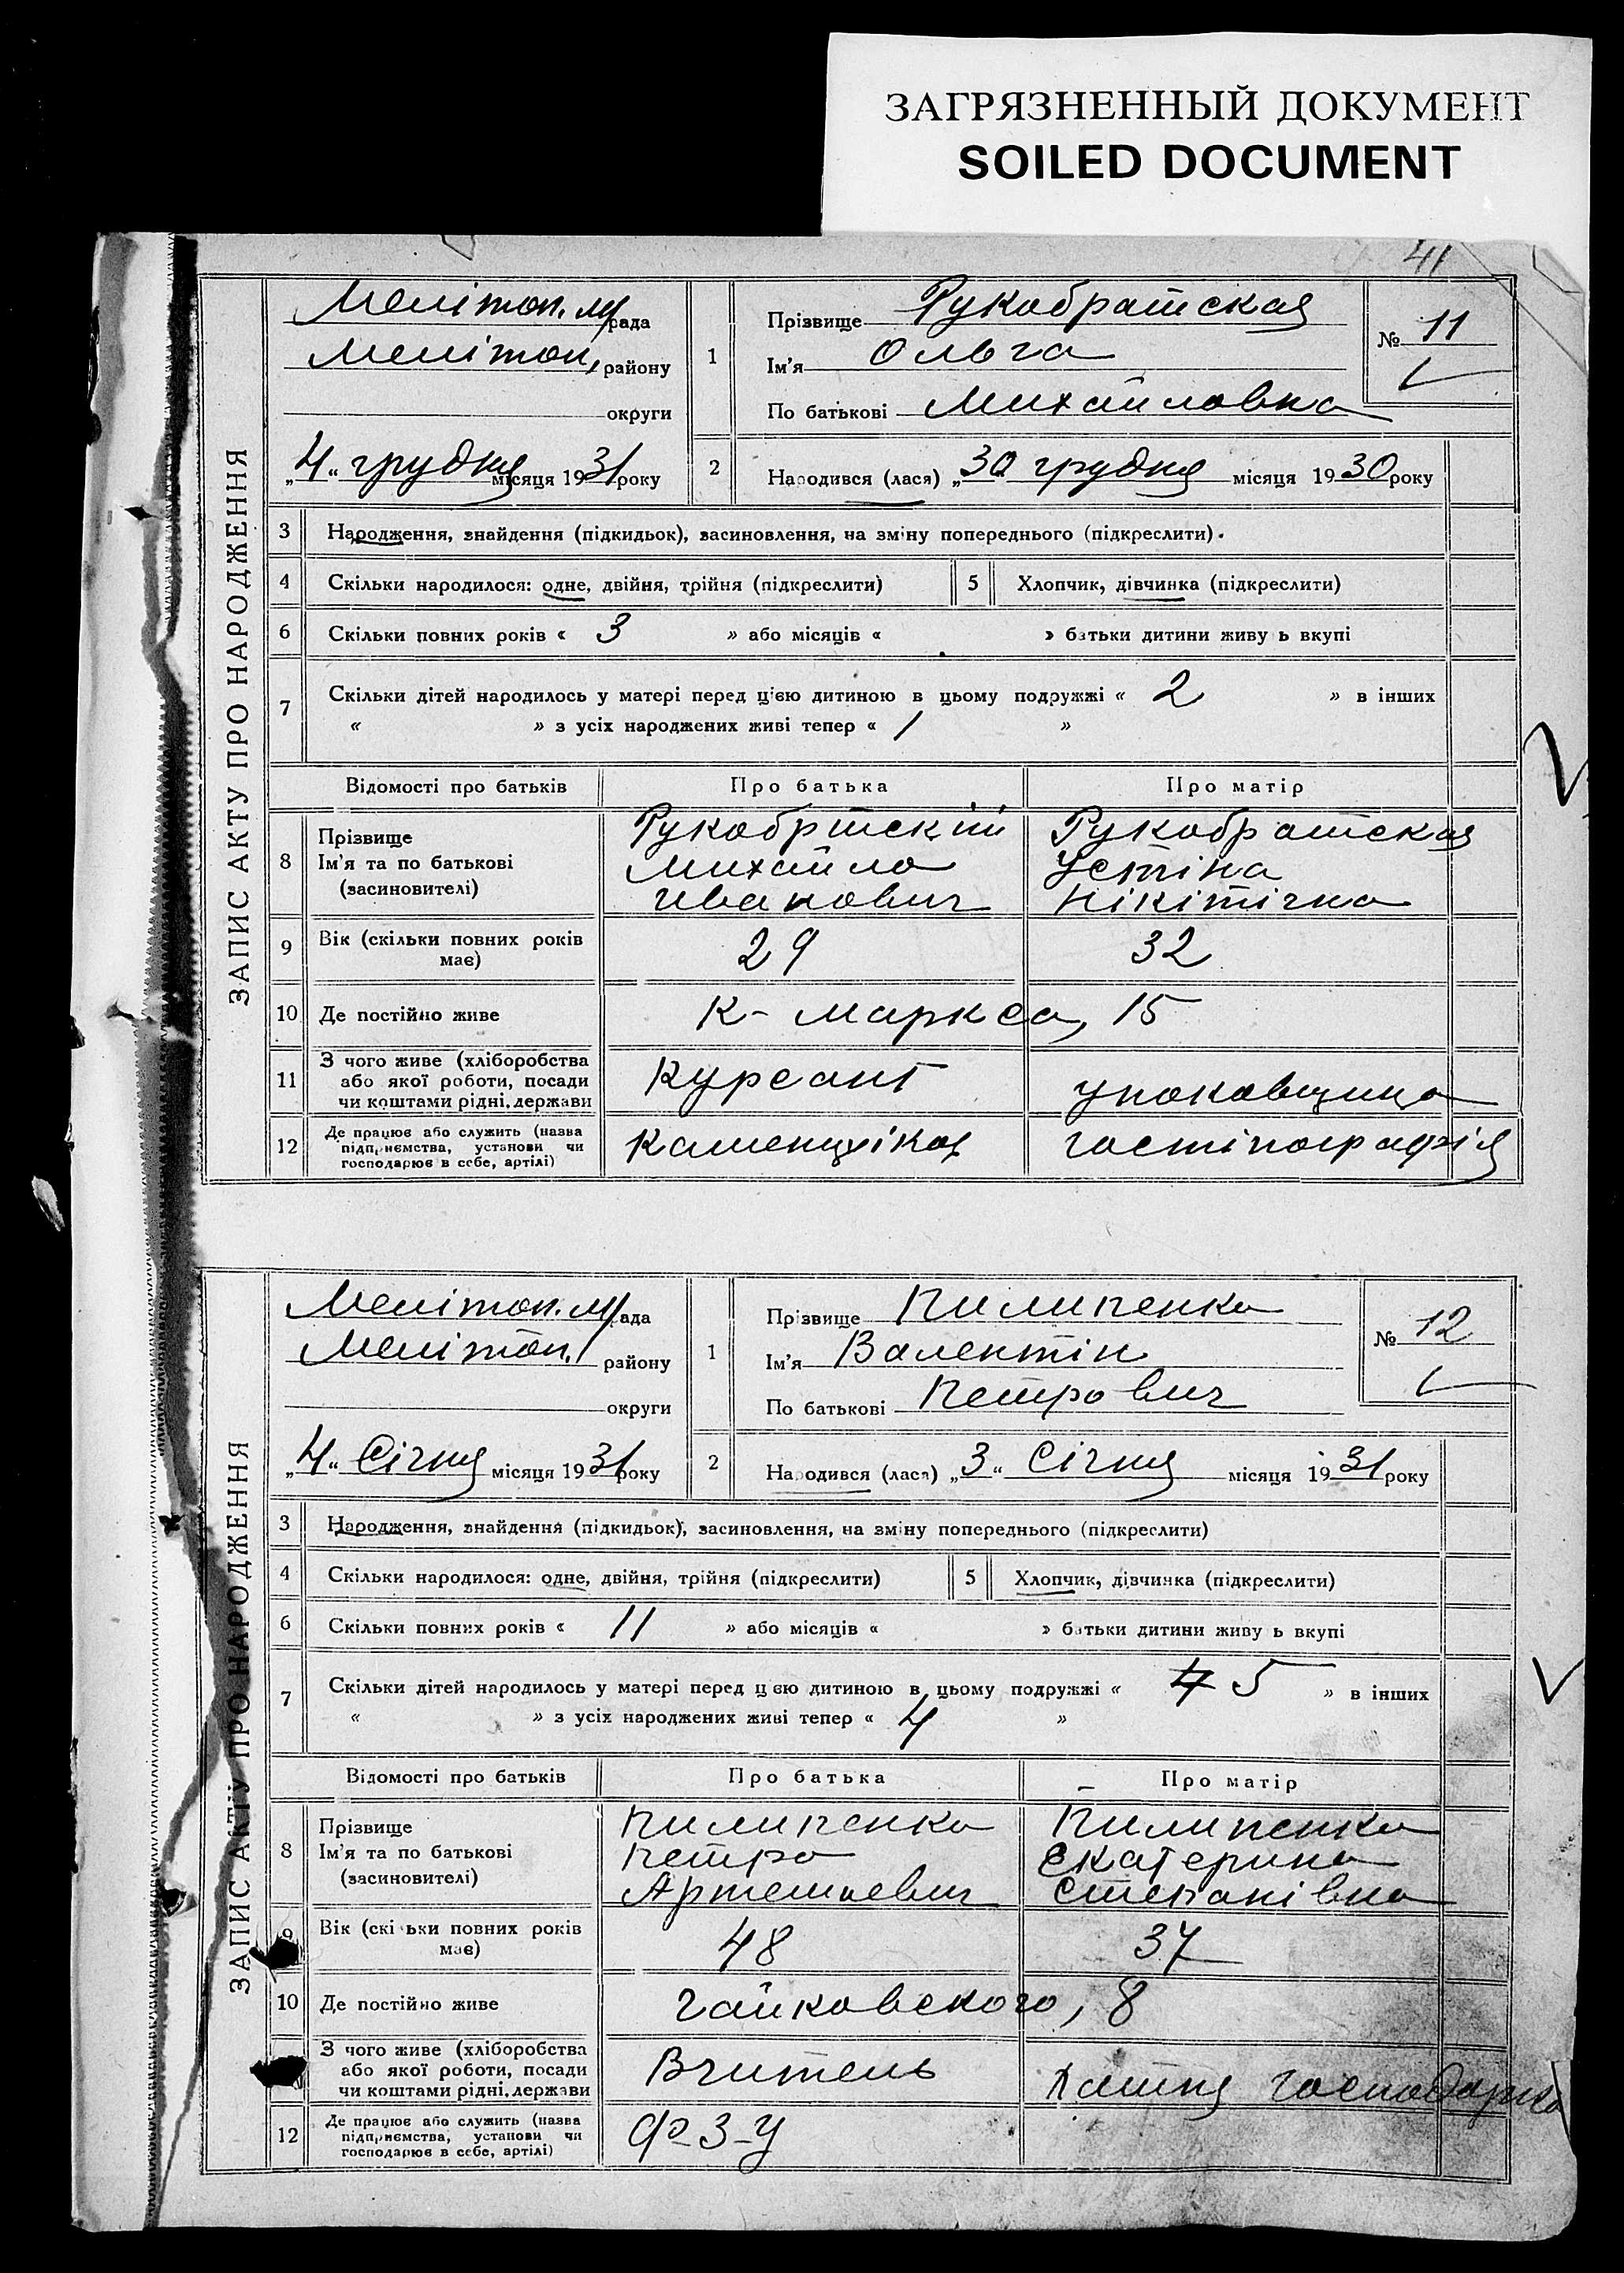 ЗАГРЯЗНЕННЫЙ ДОКУМЕНТ
SOILED DOCUMENT
41
ЗАПИС АКТУ ПРО НАРОДЖЕННЯ
Мелітоп. м/рада
Мелітоп, району
округи
„4“ грудня місяця 1931 року
1
Прізвище Рукобратская
Ім'я Ольга
По батькові Михайловна
№ 11
2
Народився (лася) „30 грудня місяця 1930 року
3 Народження, знайдення (підкидьок), засиновлення, на зміну попереднього (підкреслити).
4 Скільки народилося: одне, двійня, трійня (підкреслити) 5 Хлопчик, дівчинка (підкреслити)
6 Скільки повних років « 3 » або місяців « » батьки дитини живу ь вкупі
7 Скільки дітей народилось у матері перед цією дитиною в цьому подружжі « 2 » в інших
« » з усіх народжених живі тепер « 1 »
Відомості про батьків Про батька Про матір
8 Прізвище Рукобртский Рукобратская
Ім'я та по батькові Михайло Устіна
(засиновителі) Иванович Нікітічна
9 Вік (скільки повних років має) 29 32
10 Де постійно живе К-Маркса, 15
11 З чого живе (хліборобства Курсант упаковщица
або якої роботи, посади
чи коштами рідні, держави
12 Де працює або служить (назва Каменщіков Гостіпографія
підприємства, установи чи
господарює в себе, артілі)
ЗАПИС АКТУ ПРО НАРОДЖЕННЯ
Мелітоп. м/рада
Мелітоп. району
округи
„4“ Січня місяця 1931 року
1
Прізвище Пилипенко
Ім'я Валентін
По батькові Петрович
№ 12
2
Народився (лася) „3“ Січня місяця 1931 року
3 Народження, знайдення (підкидьок), засиновлення, на зміну попереднього (підкреслити)
4 Скільки народилося: одне, двійня, трійня (підкреслити) 5 Хлопчик, дівчинка (підкреслити)
6 Скільки повних років « 11 » або місяців « » батьки дитини живу ь вкупі
7 Скільки дітей народилось у матері перед цією дитиною в цьому подружжі « 4 5 » в інших
« » з усіх народжених живі тепер « 4 »
Відомості про батьків Про батька Про матір
8 Прізвище Пилипенко Пилипенко
Ім'я та по батькові Петро Екатерина
(засиновителі) Артемиевич Степанівна
9 Вік (скі ьки повних років має) 48 37
10 Де постійно живе Чайковского, 8
З чого живе (хліборобства Вчитель Хатня господарка
або якої роботи, посади
чи коштами рідні, держави
12 Де працює або служить (назва Ф-З-У
підприємства, установи чи
господарює в себе, артілі)